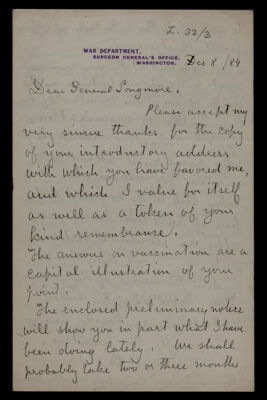 L. 32/3
WAR DEPARTMENT,
SURGEON GENERAL'S OFFICE,
WASHINGTON. Dec 8 /84
Dear General Longmore,
Please accept my
very sincere thanks for the copy
of your introductory address
with which you have favored me,
and which I value for itself
as well as a token of your
kind remembrance.
The answers on vaccination are a
capital illustration of your
point.
The enclosed preliminary notice
will show you in part what I have
been doing lately. We shall
probably take two or three months